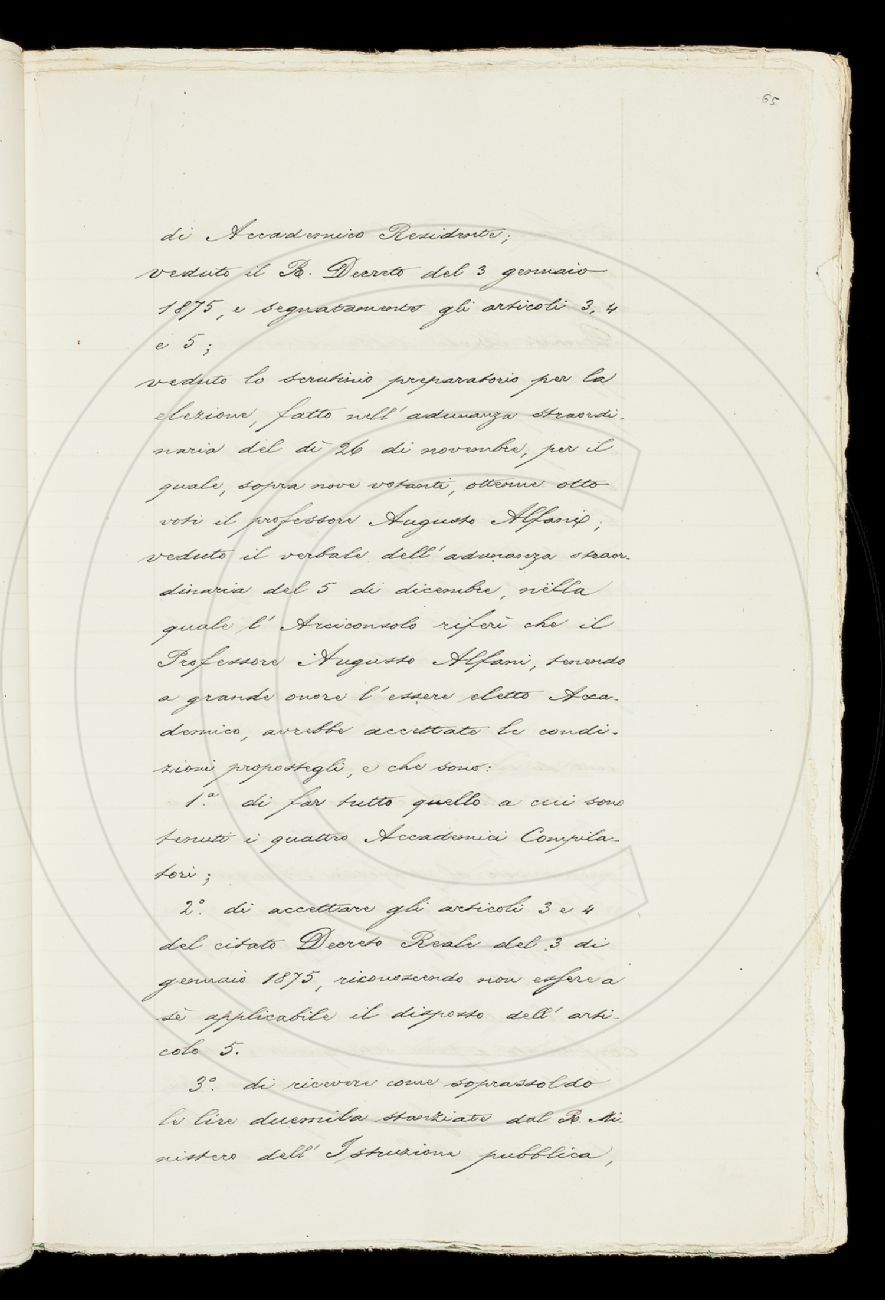 65
di Accademico Residente;
veduto il R. Decreto del 3 gennaio
1875, e segnatamente gli articoli 3, 4
e 5;
veduto lo scrutinio preparatorio per la
elezione, fatto nell'adunanza straordi-
naria del dì 26 di novembre, per il
quale, sopra nove votanti, ottenne otto
voti il professore Augusto Alfani;
veduto il verbale dell'adunanza straor-
dinaria del 5 di dicembre, nella
quale l'Arciconsolo riferì che il
Professore Augusto Alfani, tenendo
a grande onore l'essere eletto Acca-
demico, avrebbe accettate le condi-
zioni propostegli, e che sono:
1.ª di far tutto quello a cui sono
tenuti i quattro Accademici Compila-
tori;
2.º di accettare gli articoli 3 e 4
del citato Decreto Reale del 3 di
gennaio 1875, riconoscendo non essere a
sè applicabile il disposto dell'arti-
colo 5.
3.º di ricevere come soprassoldo
le lire duemila stanziate dal R. Mi
nistero dell'Istruzione pubblica,